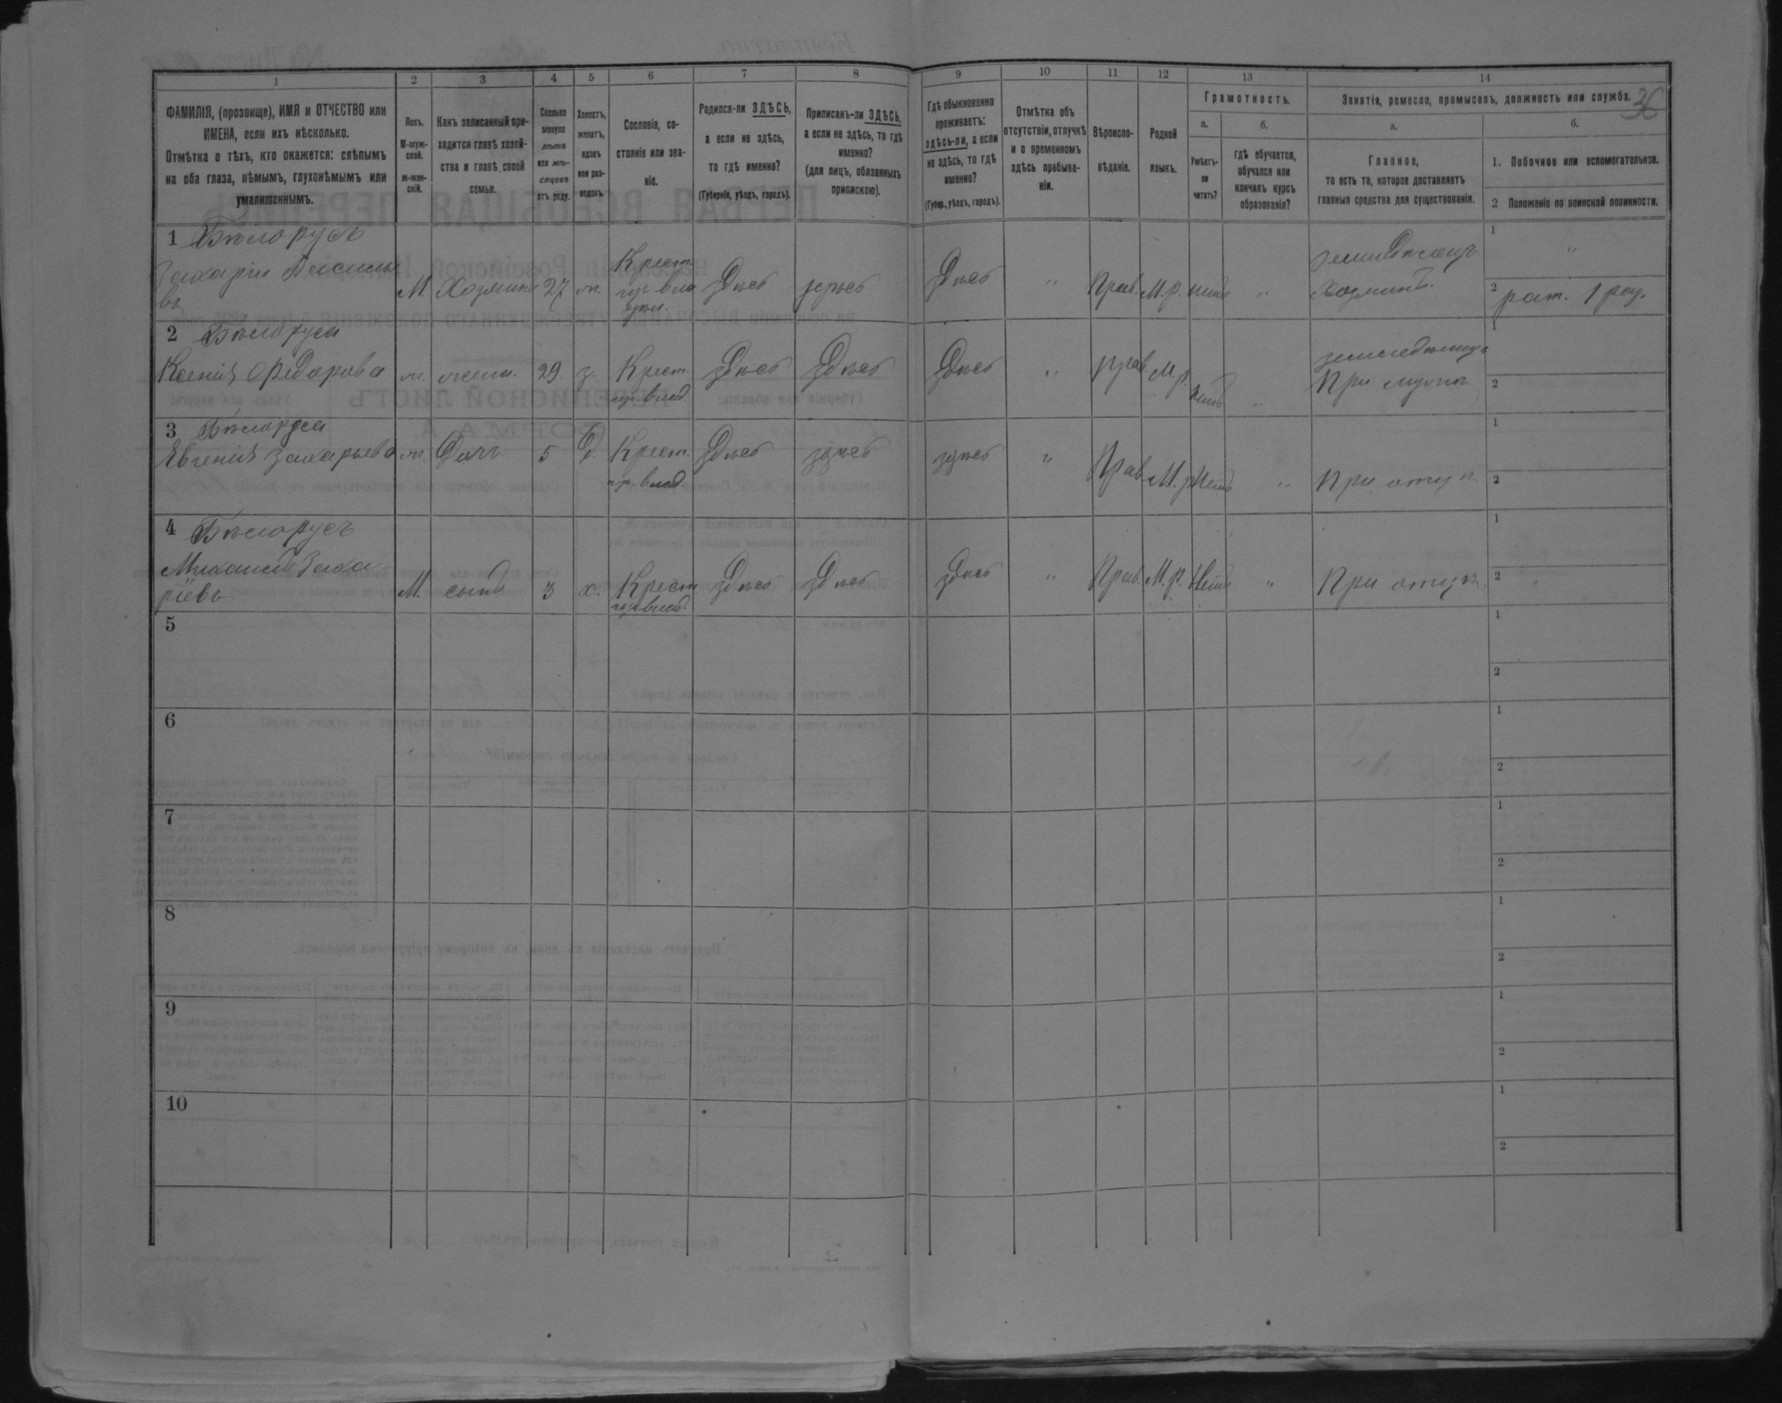 36
1 2 3 4 5 6 7 8 9 10 11 12 13 14
ФАМИЛІЯ, (прозвище), ИМЯ и ОТЧЕСТВО или
ИМЕНА, если ихъ нѣсколько.
Отмѣтка о тѣхъ, кто окажется: слѣпымъ
на оба глаза, нѣмымъ, глухонѣмымъ или
умалишеннымъ.
Полъ.
М-муж-
ской.
ж-жен-
скій.
Какъ записанный при-
ходится главѣ хозяй-
ства и главѣ своей
семьи.
Сколько
минуло
лѣтъ
или мѣ-
сяцевъ
отъ роду.
Холостъ,
женатъ,
вдовъ
или раз-
веденъ.
Сословіе, со-
стояніе или зва-
ніе.
Родился-ли ЗДѢСЬ,
а если не здѣсь,
то гдѣ именно?
(Губернія, уѣздъ, городъ).
Приписанъ-ли ЗДѢСЬ,
а если не здѣсь, то гдѣ
именно?
(для лицъ, обязанныхъ
припискою).
Гдѣ обыкновенно
проживаетъ:
здѣсь-ли, а если
не здѣсь, то гдѣ
именно?
(Губер., уѣздъ, городъ).
Отмѣтка объ
отсутствіи, отлучкѣ
и о временномъ
здѣсь пребыва-
ніи.
Вѣроиспо-
вѣданіе.
Родной
языкъ.
Грамотность.
а.
Умѣетъ-
ли
читать?
б.
Гдѣ обучается,
обучался или
кончилъ курсъ
образованія?
Занятіе, ремесло, промыселъ, должность или служба.
а.
Главное,
то есть то, которое доставляетъ
главныя средства для существованія.
б.
1. Побочное или вспомогательное.
2 Положеніе по воинской повинности.
1 Бѣлорусъ
Захарій Василь
евъ
М Хозяинъ 27 ж. Крест. Здѣсь здѣсь Здѣсь " Прав. М.р. нетъ "
Хозяинъ.
1 "
2 рат. 1 раз.
2 Бѣлоруса
Ксенія Федорова ж. жена. 29 з. Крест. Здѣсь Здѣсь Здѣсь " Прав М.р. нетъ
При мужѣ
1
2
3 Бѣлоруса
Евгенія Захарьева ж. Дочь 5 Д. Крест. Здѣсь здѣсь здѣсь " Прав М.р. Нетъ " При отцѣ
1
2
4 Бѣлорусъ
Михаилъ Заха
ріевъ М. сынъ 3 х. Крест Здѣсь Здѣсь Здѣсь " Прав. М.р. Нетъ " При отцѣ
1
2
5
1
2
6
1
2
7
1
2
8
1
2
9
1
2
10
1
2